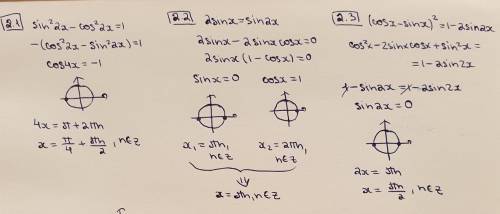 2.1
sin²2x-cos²2x=1
-(cos²2x-sin²2x)=1
cos4x=-1
4x=π+2πn
x=π/4+πn/2, n∈Z
2.2
2sinx=sin2x
2sinx-2sinxcosx=0
2sinx(1-cosx)=0
sinx=0 cosx=1
x₁=πn, n∈Z x₂=2πn, n∈Z
⇓
x=πn, n∈Z
2.3
(cosx-sinx)²=1-2sin2x
cos²x-2sinxcosx+sin²x=
=1-2sin2x
1-sin2x=1-2sin2x
sin2x=0
2x=πn
x=πn/2, n∈Z